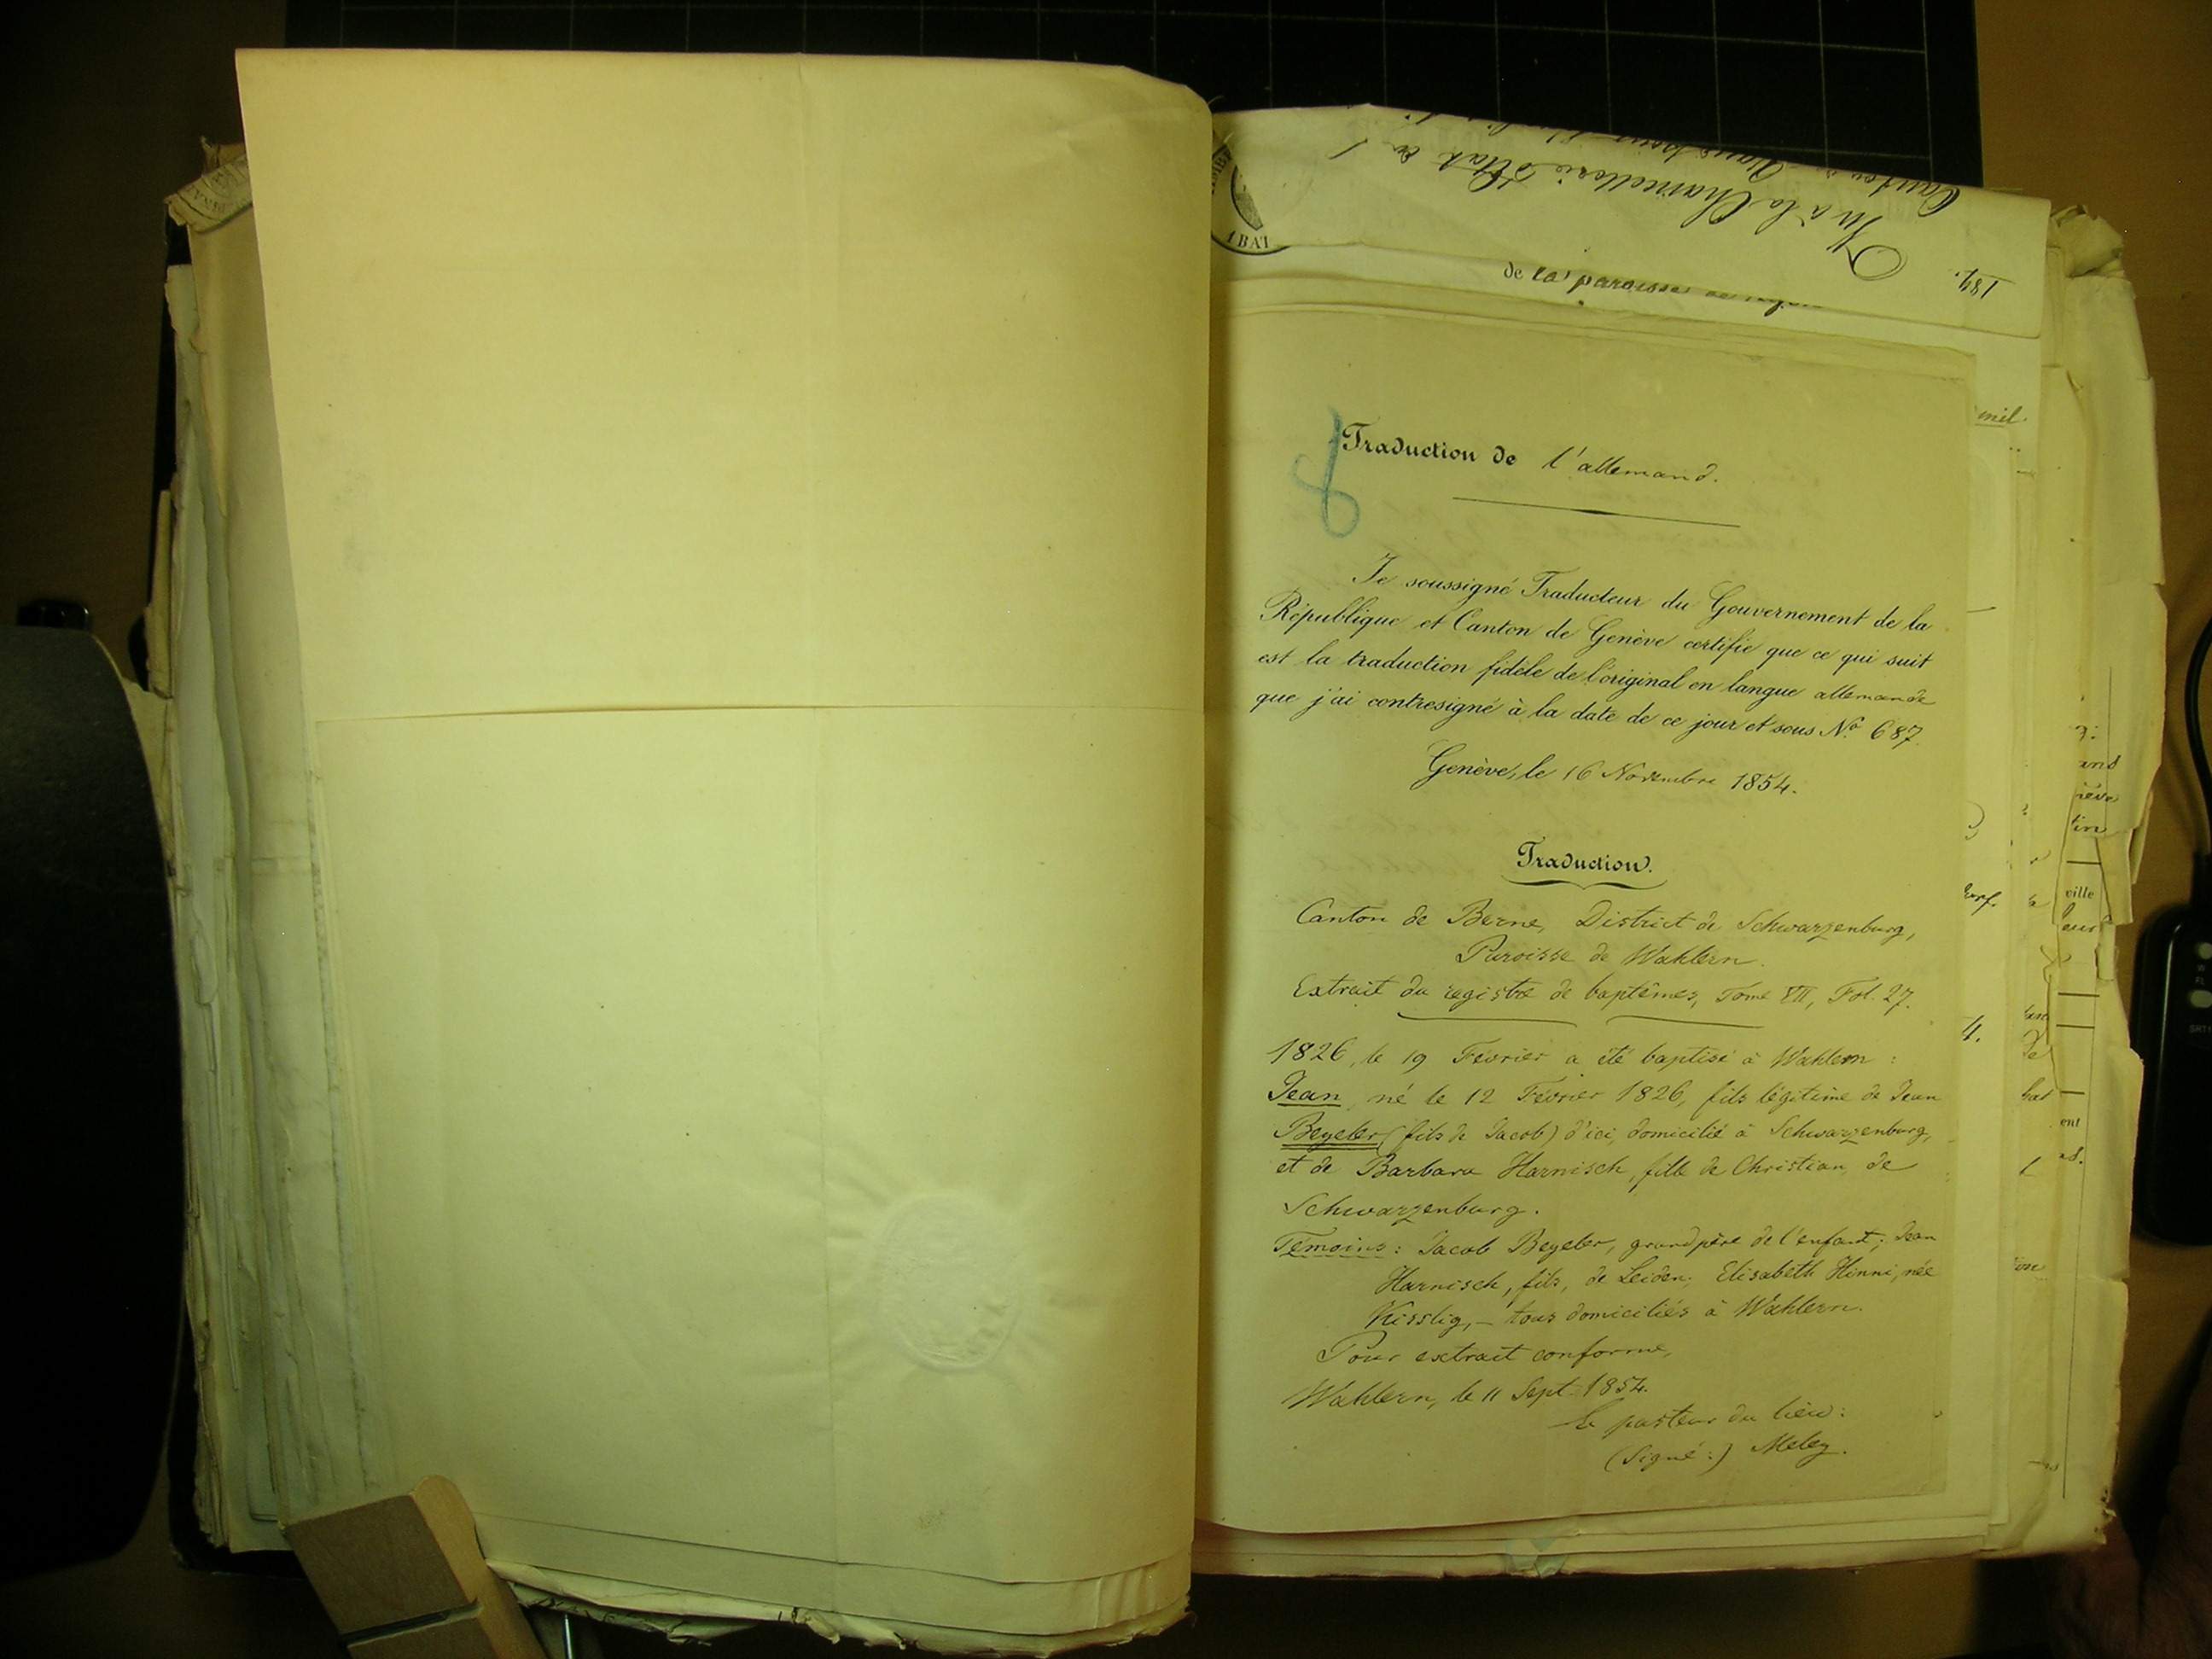 Vu à la Chancellerie d'Etat
184
1 BAT
de la paroisse de
mil
8
Traduction de l'allemand.
Je soussigné Traducteur du Gouvernement de la
République et Canton de Genève certifie que ce qui suit
est la traduction fidèle de l'original en langue allemande
que j'ai contresigné à la date de ce jour et sous No. 687.
Genève, le 16 Novembre 1854.
Traduction.
Canton de Berne, District de Schwarzenburg,
Paroisse de Wahlern.
Extrait du registre de baptêmes, Tome VII, Fol. 27.
1826, le 19 Février a été baptisé à Wahlern :
Jean, né le 12 Février 1826, fils légitime de Jean
Beyeler (fils de Jacob) d'ici, domicilié à Schwarzenburg,
et de Barbara Harnisch, fille de Christian, de
Schwarzenburg.
Témoins : Jacob Beyeler, grandpère de l'enfant; Jean
Harnisch, fils, de Leiden; Elisabeth Hinni, née
Kisslig, – tous domiciliés à Wahlern.
Pour extrait conforme,
Wahlern, le 11 Sept. 1854.
Le pasteur du lieu :
(Signé :) Meley.
ville